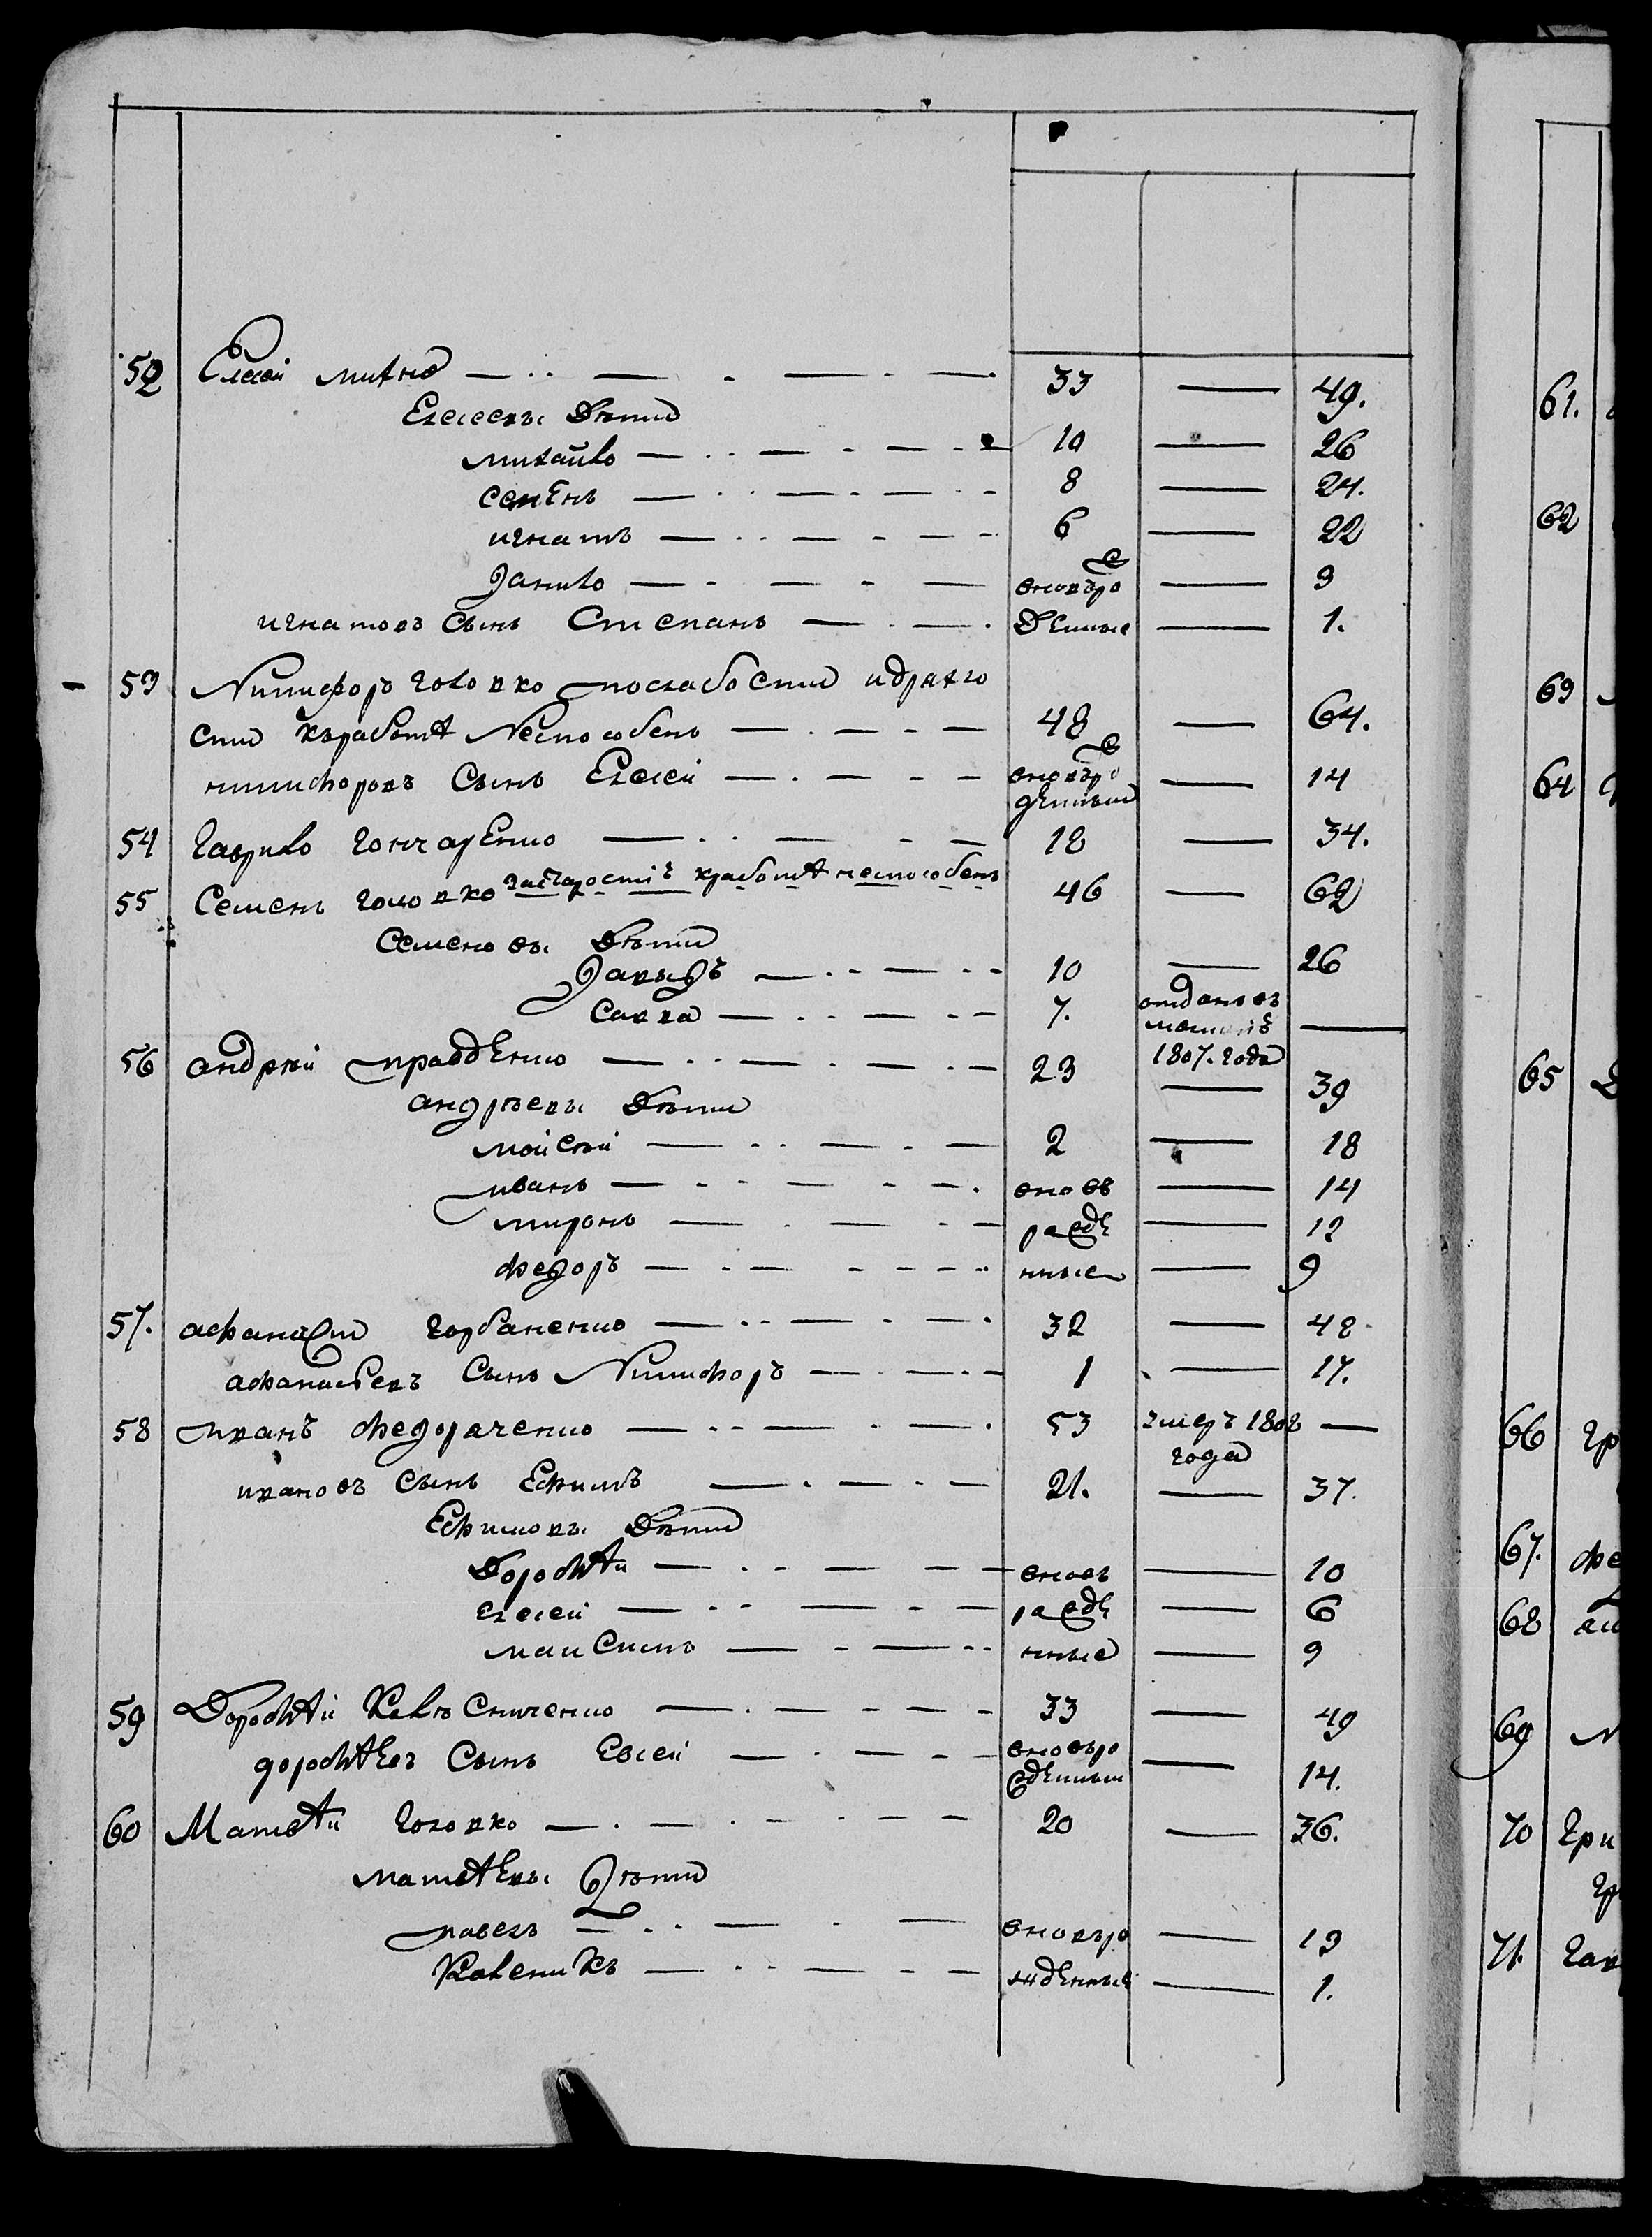 52 Елисей михно 33 — 49.
Елисеевы Дѣти
михайло 10 — 26
семенъ 8 — 24.
игнатъ 6 — 22
Данило вновъро — 9
игнатовъ сынъ Степанъ Денные — 1.
53 Никифоръ головко послабости идряхло
сти къработѣ Неспособенъ 48 — 64.
никифоровъ Сынъ Елисей вновъро — 14
денный
54 гаврило гончаренко 18 — 34.
55 Семенъ головко застаростiю кработѣ неспособенъ 46 — 62
Семеновы Дѣти
Давыдъ 10 — 26
Савва 7. отданъ въ —
1807. года
56 андрѣй правденко 23 — 39
андрѣевы Дѣти
мойсѣй 2 — 18
иванъ вновь — 14
миронъ рожде — 12
федоръ нные — 9
57. афанасий горбаненко 32 — 48
афанасьевъ Сынъ Никифоръ 1 — 17.
58 иванъ федорченко 53 умеръ 1808 —
года
ивановъ сынъ Ефимъ 21. — 37.
Ефимовы Дѣти
Дорофѣй вновь — 10
елисей рожде — 6
максимъ нные — 9
59 Дорофѣй 33 — 49
дорофѣевъ Сынъ Евсей вновъро — 14.
жденный
60 Матвѣй головко 20 — 36.
матвѣевы Дѣти
павелъ вновъро — 13
Каленикъ жденные — 1.
61.
62
63
64
65
66 гр
67. фе
68
69
70 гри
гр
71. гав